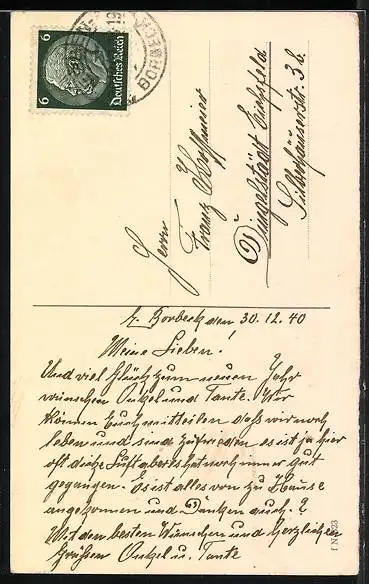 6 Deutsches Reich 6
BORBECK
Herrn
Franz Hoffmeier
Dingelstädt Eichsfeld
Silberhäuserstr. 3 b.
E. Borbeck den 30.12.40
Meine Lieben!
Und viel Glück zum neuen Jahr
wünschen Onkel und Tante. Wir
können Euch mitteilen daß wir noch
leben und sind zufrieden es ist ja hier
oft dicke Luft aber es hat noch immer gut
gegangen. Es ist alles von zu Hause
angekommen und Danken auch.
Mit den besten Wünschen und herzlichen
Grüßen Onkel u. Tante